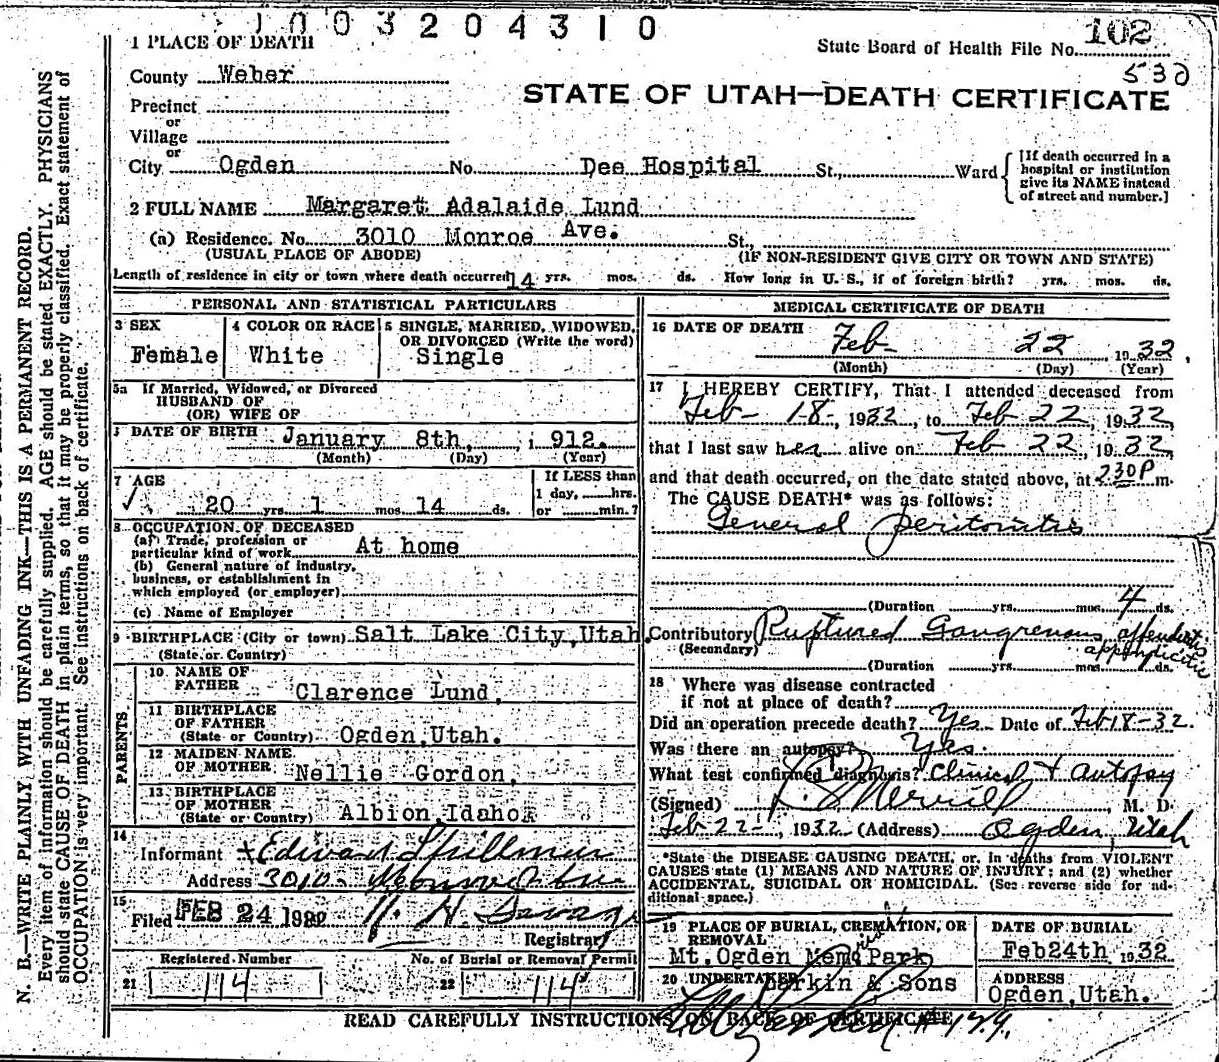 1003204310
1 PLACE OF DEATH
State Board of Health File No. 102
County Weber
530
STATE OF UTAH—DEATH CERTIFICATE
Precinct
or
Village
or
City Ogden No. Dee Hospital St., Ward
[If death occurred in a
hospital or institution
give its NAME instead
of street and number.]
2 FULL NAME Margaret Adalaide Lund
(a) Residence. No. 3010 Monroe Ave. St.,
(USUAL PLACE OF ABODE) (IF NON-RESIDENT GIVE CITY OR TOWN AND STATE)
Length of residence in city or town where death occurred 14 yrs. mos. ds. How long in U. S., if of foreign birth? yrs. mos. ds.
PERSONAL AND STATISTICAL PARTICULARS
3 SEX
Female
4 COLOR OR RACE
White
5 SINGLE, MARRIED, WIDOWED,
OR DIVORCED (Write the word)
Single
5a If Married, Widowed, or Divorced
HUSBAND OF
(OR) WIFE OF
DATE OF BIRTH January 8th, 1912.
(Month) (Day) (Year)
7 AGE
20 yrs. 1 mos. 14 ds.
If LESS than
1 day, hrs.
or min.?
8 OCCUPATION OF DECEASED
(a) Trade, profession or
particular kind of work At home
(b) General nature of industry,
business, or establishment in
which employed (or employer)
(c) Name of Employer
9 BIRTHPLACE (City or town) Salt Lake City, Utah.
(State or Country)
PARENTS
10 NAME OF
FATHER Clarence Lund.
11 BIRTHPLACE
OF FATHER
(State or Country) Ogden, Utah.
12 MAIDEN NAME
OF MOTHER Nellie Gordon.
13 BIRTHPLACE
OF MOTHER
(State or Country) Albion, Idaho.
14
Informant Edward Spillman
Address 3010 Monroe Ave
15
Filed FEB 24 19 H. H. Savage
Registrar
Registered Number
21 114
No. of Burial or Removal Permit
22 114
MEDICAL CERTIFICATE OF DEATH
16 DATE OF DEATH
Feb 22, 1932.
(Month) (Day) (Year)
17 I HEREBY CERTIFY, That I attended deceased from
Feb - 18 -, 1932, to Feb 22, 1932,
that I last saw her alive on Feb 22, 1932,
and that death occurred, on the date stated above, at 230P m.
The CAUSE DEATH* was as follows:
General peritonitis
(Duration yrs. mos. 4 ds.
Contributory Ruptured Gangrenous
(Secondary) appendicitis
(Duration yrs. mos. ds.
18 Where was disease contracted
if not at place of death?
Did an operation precede death? Yes. Date of Feb 18-32.
Was there an autopsy? Yes.
What test confirmed diagnosis? Clinical + autopsy
(Signed) Merrill, M. D.
Feb 22, 1932 (Address) Ogden, Utah
*State the DISEASE CAUSING DEATH, or in deaths from VIOLENT
CAUSES state (1) MEANS AND NATURE OF INJURY; and (2) whether
ACCIDENTAL, SUICIDAL OR HOMICIDAL. (See reverse side for ad-
ditional space.)
19 PLACE OF BURIAL, CREMATION, OR
REMOVAL
Mt. Ogden Memo Park
DATE OF BURIAL
Feb24th 1932
20 UNDERTAKER
Larkin & Sons
ADDRESS
Ogden, Utah.
READ CAREFULLY INSTRUCTIONS ON BACK OF CERTIFICATE
N. B.—WRITE PLAINLY WITH UNFADING INK—THIS IS A PERMANENT RECORD.
Every item of information should be carefully supplied. AGE should be stated EXACTLY. PHYSICIANS
should state CAUSE OF DEATH in plain terms, so that it may be properly classified. Exact statement of
OCCUPATION is very important. See instructions on back of certificate.